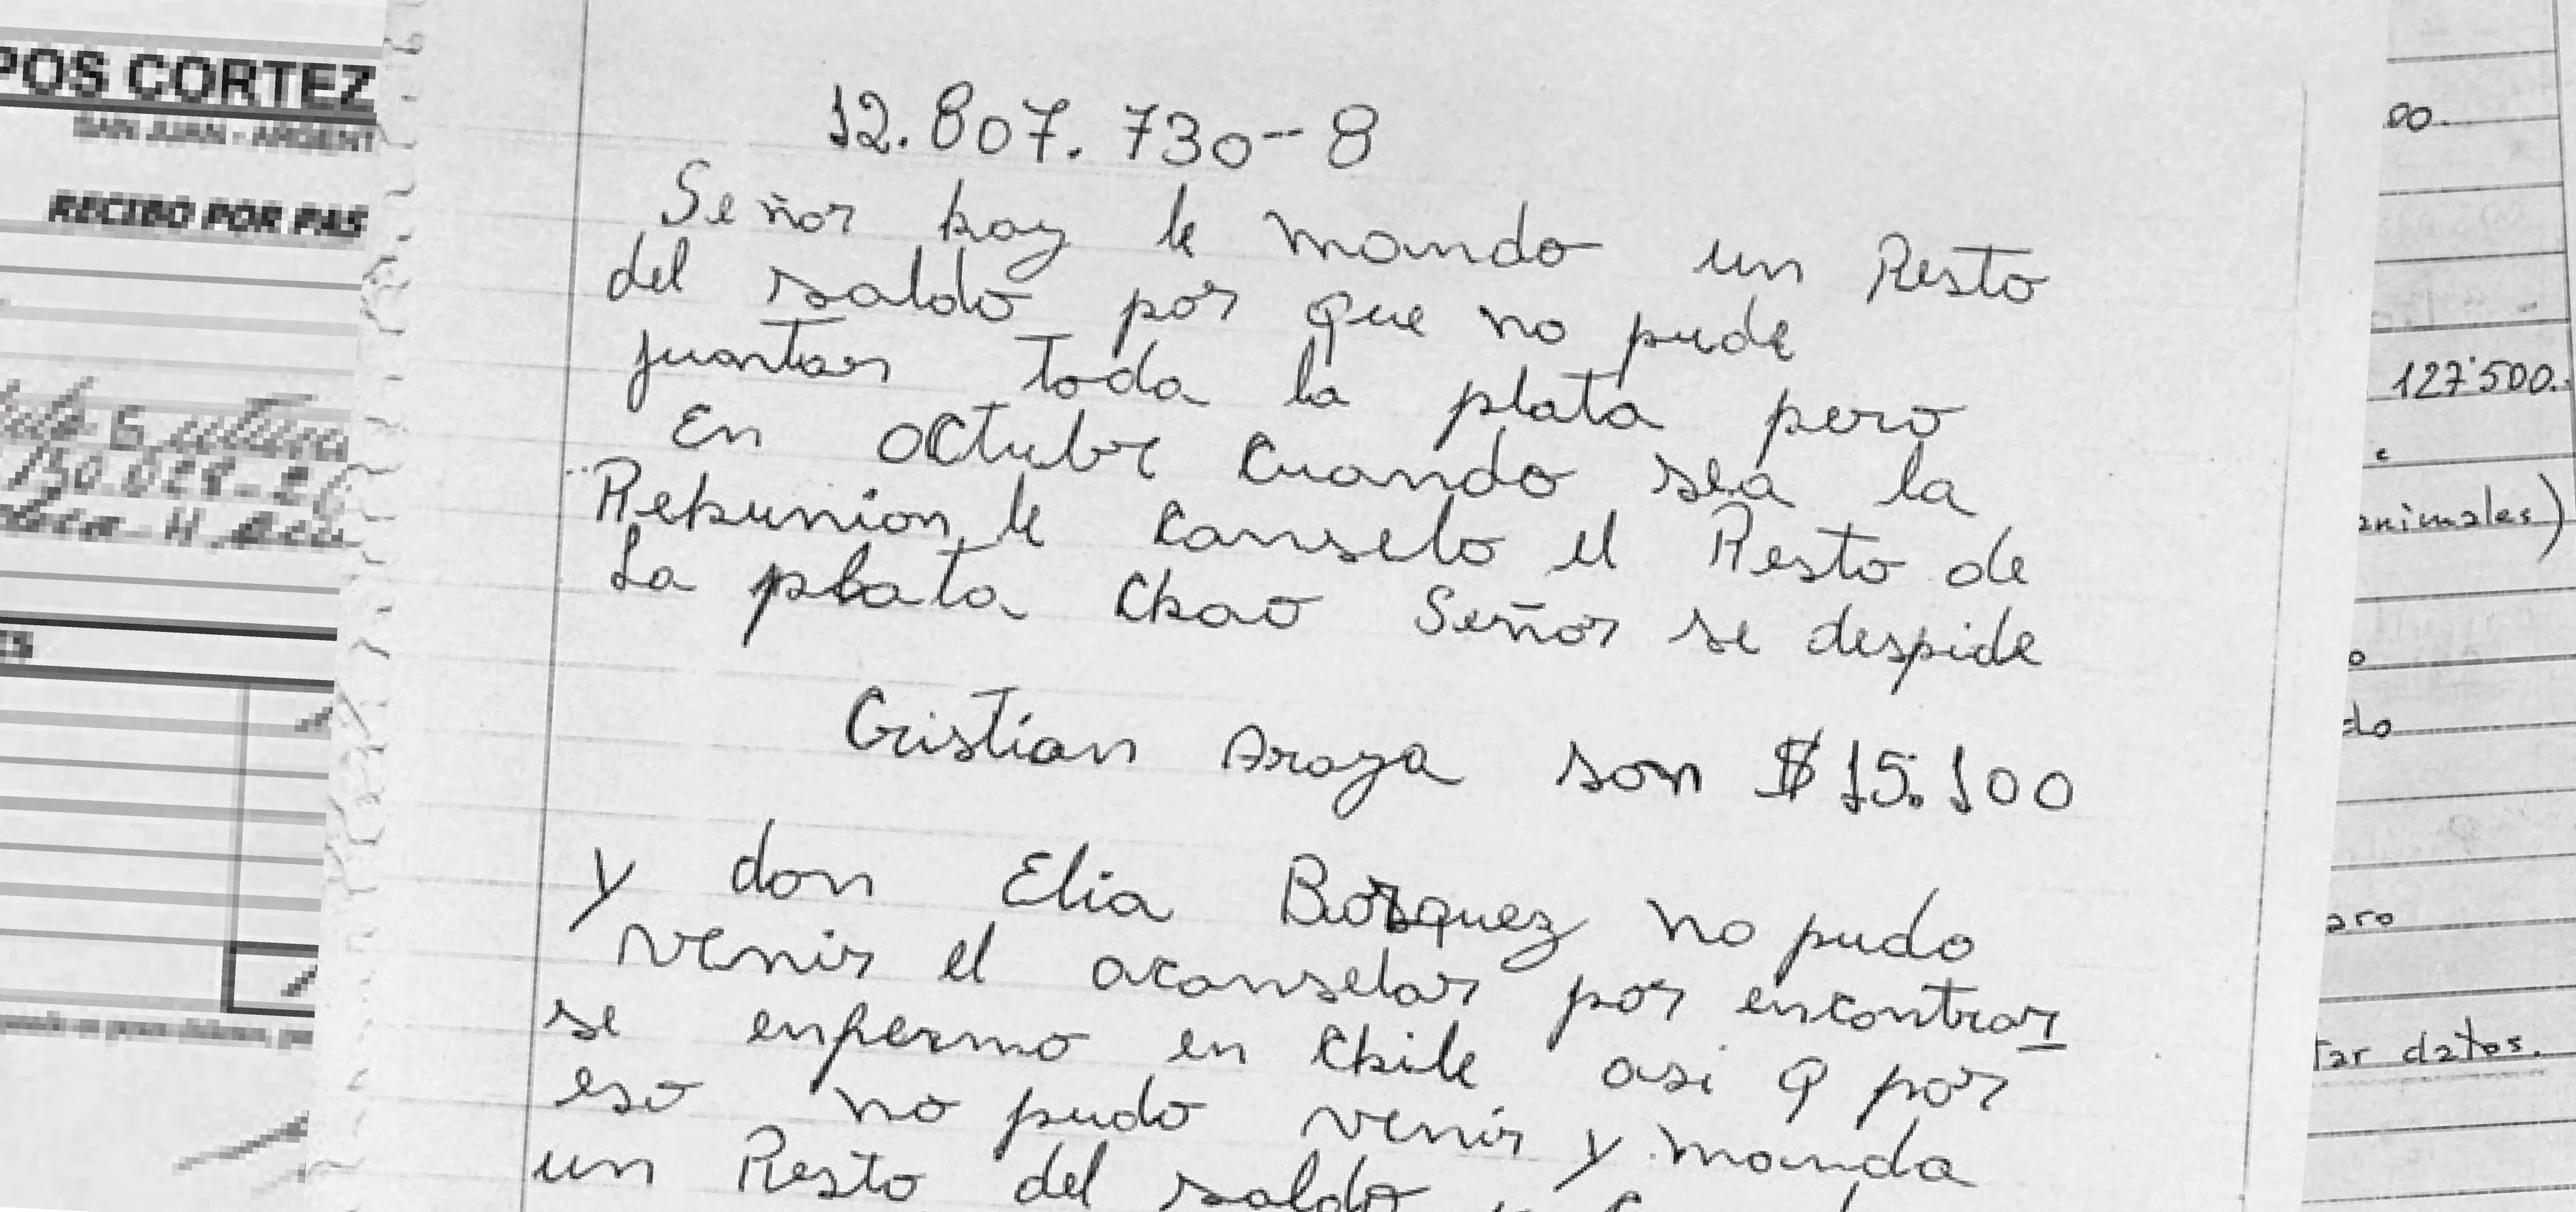 POS CORTEZ
SAN JUAN - ARGENT
RECIBO POR PAS
12.807.730-8
Señor hoy le mando un Resto
del saldo por que no pude
juantar toda la plata pero
En octubre cuando sea la
Rehunion le canselo el Resto de
La plata chao Señor se despide
Cristian Araya son $15.100
y don Elia Borquez no pudo
venir el acanselar por encontrar
se enfermo en Chile asi q por
eso no pudo venir y manda
un Resto del saldo
00.
127'500.
animales)
do
aro
tar datos.